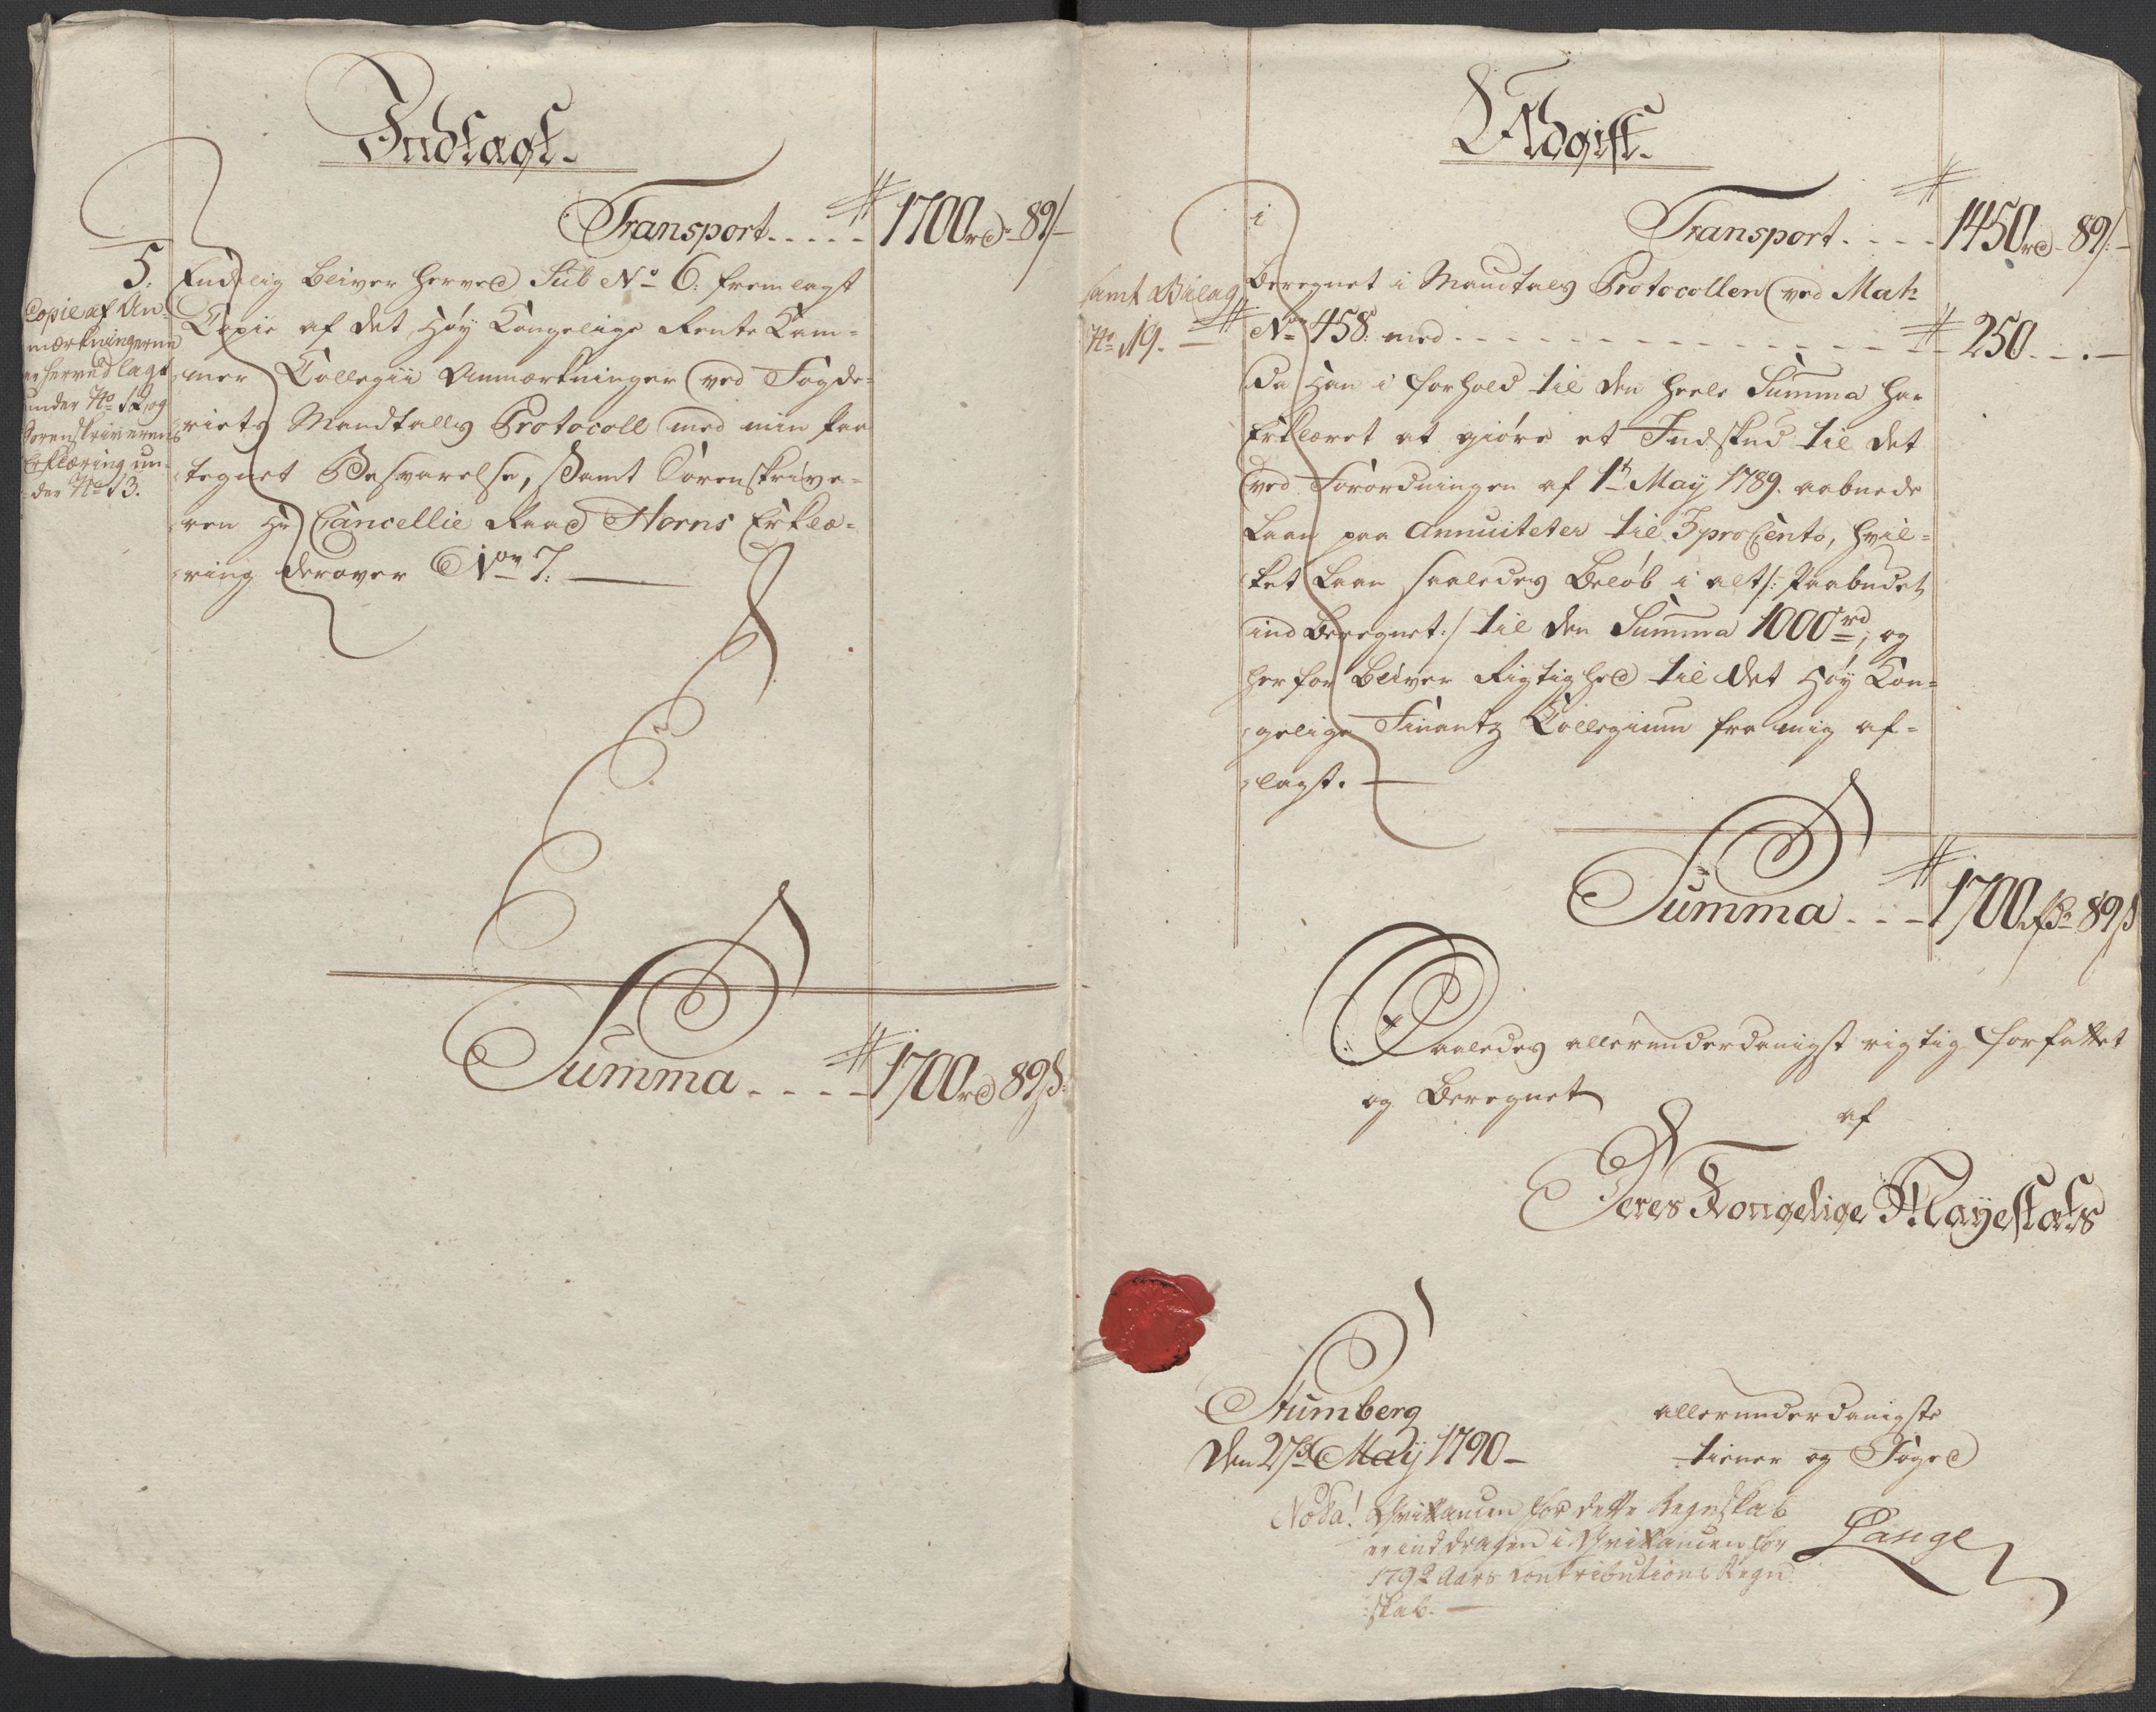 Indtægt.
Transport . . . . . 1700 rd - 89 s
5. Endelig bliver herved Sub No 6: fremlagt
Copie af det Høy Kongelige Rente Kam-
mer Collegii Anmærkninger ved Fogde-
riets Mandtalls Protocoll med min paa
tegnet Besvarelse, samt Sorenskrive-
ren Hr Cancellie Raad Horns Erklæ-
ring derover No 7.
Copie af An-
mærkningerne
er herved lagt
under No 12, og
Sorenskriverens
Erklæring un-
der No 13.
Summa . . . . 1700 rd 89 s.
Udgift.
Transport . . . . 1450 rd - 89 s
samt Bilag
No 19.
beregnet i Mandtals Protocollen ved Mat:
No 458. med . . . . . . . . . . . . 250 . . . —
Da Han i forhold til den heele Summa har
Erklæret at giøre et Indskud til det
ved Forordningen af 1te May 1789. aabnede
Laan paa Annuiteter til 3 pro Cento, hvil-
ket Laan saaledes Beløb i alt /: Paabudet
ind Beregnet :/ til den Summa 1000 rd, og
herfor bliver Rigtighed til det Høy Kon-
gelige Finantz Collegium fra mig af-
lagt. —
Summa . . . 1700 rd 89 s
Saaledes allerunderdanigst rigtig forfattet
og Beregnet
af
Deres Kongelige Mayestæts
Stumberg
Den 27de May 1790 —
allerunderdanigste
tiener og Foged
Lange
Nota! Qvittancen for dette Regnskab
er inddragen i Qvittancen for
1792 Aars Contributions Regn
skab. —